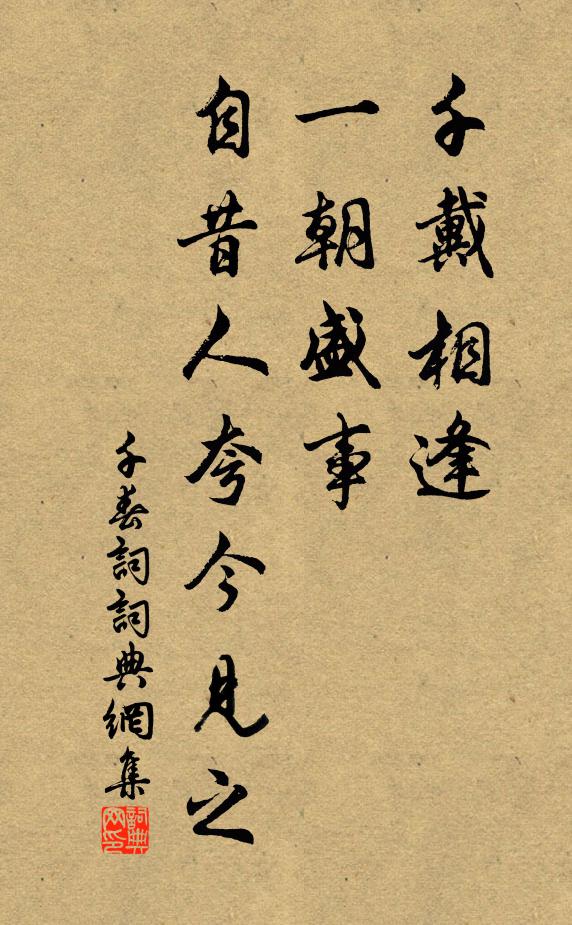 千戴相逢
一朝盛事
自昔人夸今見之
千春詞詞典網集
詞典网印